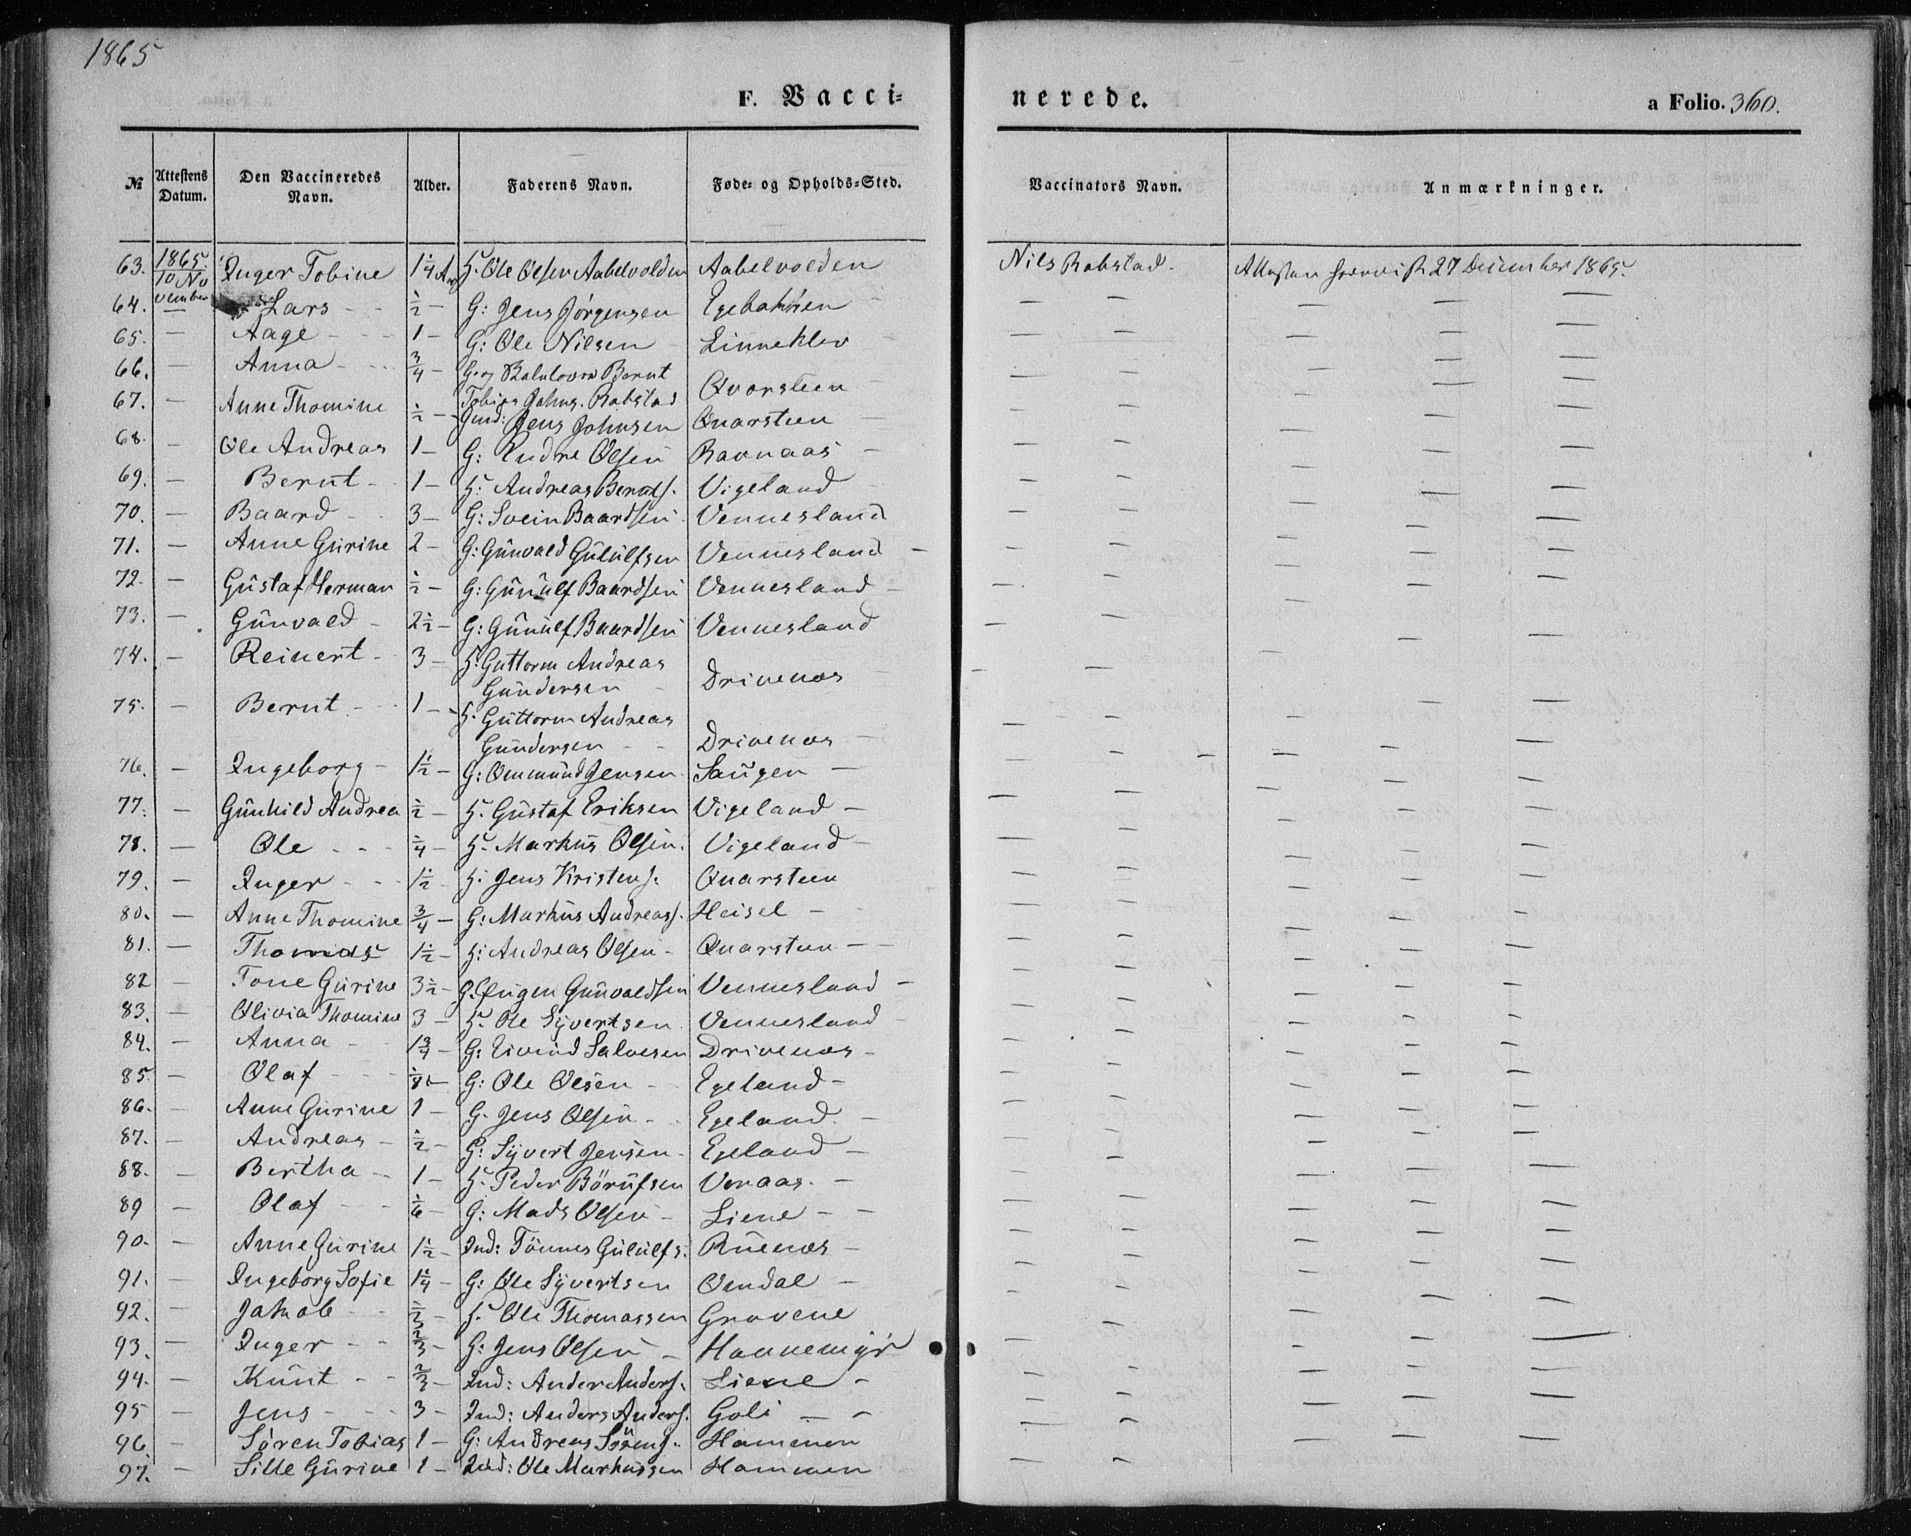 1865
F. Vacci=
nerede.
a Folio. 360.
№ Attestens Datum. Den Vaccineredes Navn. Alder. Faderens Navn. Føde- og Opholds-Sted. Vaccinators Navn. Anmærkninger.
63. 1865. 10 November Inger Tobine 1 1/4 Ole Olsen Aabelvolden Aabelvolden Nils Robstad. 27 December 1865.
64. — Lars 1/2 — G: Jens Jørgensen Egebakken — — — — —
65. — Aage 1 — G: Ole Nilsen Linneklev — — — — —
66. — Anna 3/4 — Bernt
Tobias Johns. Robstad Qvarsteen — — — — —
67. — Anne Thomine 1/2 — Jens Johnsen Quarsteen — — — — —
68. — Ole Andreas 1 — G: Endre Olsen Ravnaas — — — — —
69. — Bernt 1 — H: Andreas Bernts. Vigeland — — — — —
70. — Baard 3 — G: Svein Baardsen Vennesland — — — — —
71. — Anne Gurine 2 — G: Gunvald Gululfsen Vennesland — — — — —
72. — Gustaf Herman 1/2 — G: Gunulf Baardsen Vennesland — — — — —
73. — Gunvald 2 1/2 — G: Gunulf Baardsen Vennesland — — — — —
74. — Reinert 3 — H: Guttorm Andreas
Gundersen Drivenes — — — — —
75. — Bernt 1 — H: Guttorm Andreas
Gundersen Drivenes — — — — —
76. — Ingeborg 1 1/2 — G: Ommund Jensen Saugen — — — — —
77. — Gunhild Andrea 1/2 — H. Gustaf Eriksen Vigeland — — — — —
78. — Ole 1/4 — H. Markus Olsen. Vigeland — — — — —
79. — Inger 1 1/2 H. Jens Kristens. Quarsteen — — — — —
80. — Anne Thomine 3/4 — G: Markus Andreass. Heisel — — — — —
81. — Thomas 1 1/2 — H: Andreas Olsen Quarsteen — — — — —
82 — Tone Gurine 3 1/2 — G. Eugen Gunvaldsen Vennesland — — — — —
83. — Olivia Thomine 3 — H. Ole Syvertsen Vennesland — — — — —
84. — Anna 1 3/4 — G: Eivind Salvesen Drivenes — — — — —
85. — Olaf 1/8 — G: Ole Olsen Egeland — — — — —
86. — Anne Gurine 1 — G. Jens Olsen Egeland — — — — —
87. — Andreas 1/2 — G: Syvert Jensen Egeland — — — — —
88. — Bertha 1 — H. Peder Börufsen Veraas. — — — — —
89 — Olaf 1/6 — G: Mads Olsen Liene — — — — —
90. — Anne Gurine 1 1/2 — Ind: Tönnes Gululfs. Ruenes — — — — —
91. — Ingeborg Sofie 1 1/4 — G: Ole Syvertsen Omdal — — — — —
92. — Jakob 1/2 — H. Ole Thomassen Grovene — — — — —
93. — Inger 2/3 — G: Jens Olsen Honnemyr — — — — —
94. — Knut 2/3 — Ind: Anders Anders. Liene — — — — —
95 — Jens 3 — Ind: Anders Anders. Goli — — — — —
96. — Søren Tobias 1 — G: Andreas Sörens. Hommen — — — — —
97. — Sille Gurine 1 — Ind: Ole Markussen Hommen — — — — —